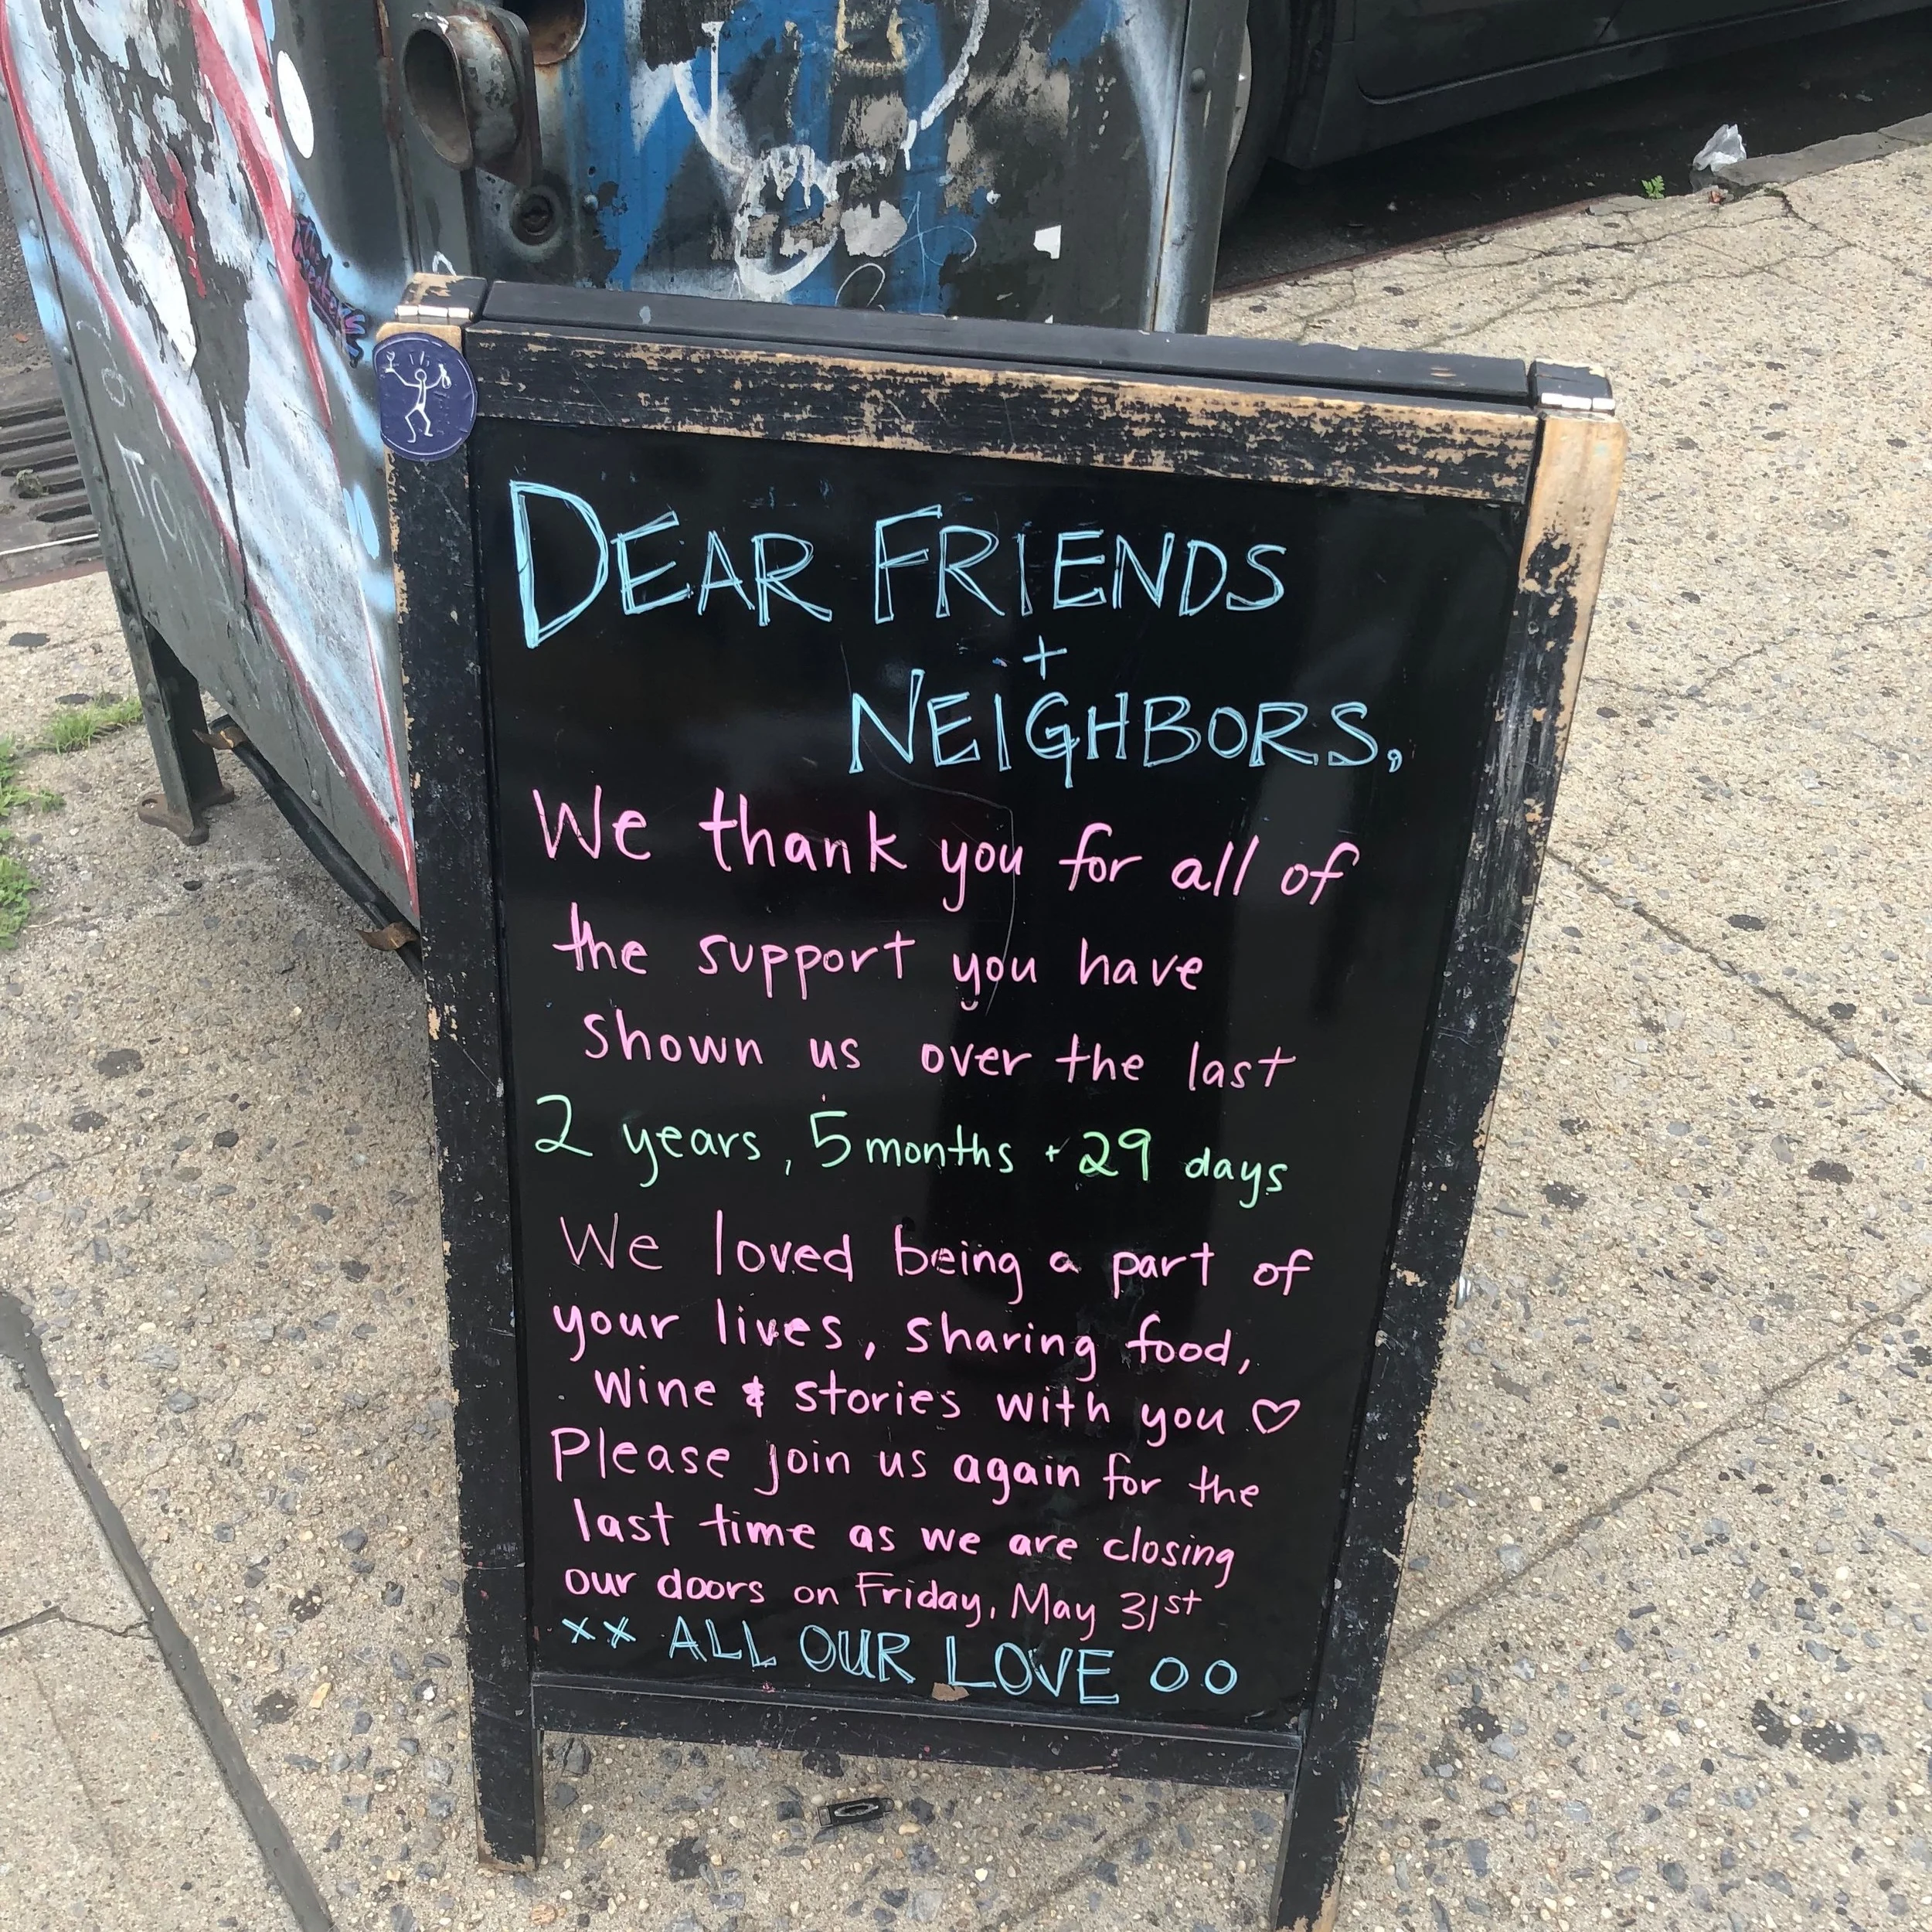 DEAR FRIENDS
+
NEIGHBORS,
We thank you for all of
the support you have
shown us over the last
2 years, 5 months + 29 days
We loved being a part of
your lives, sharing food,
wine & stories with you ♡
Please join us again for the
last time as we are closing
our doors on Friday, May 31st
xx ALL OUR LOVE OO